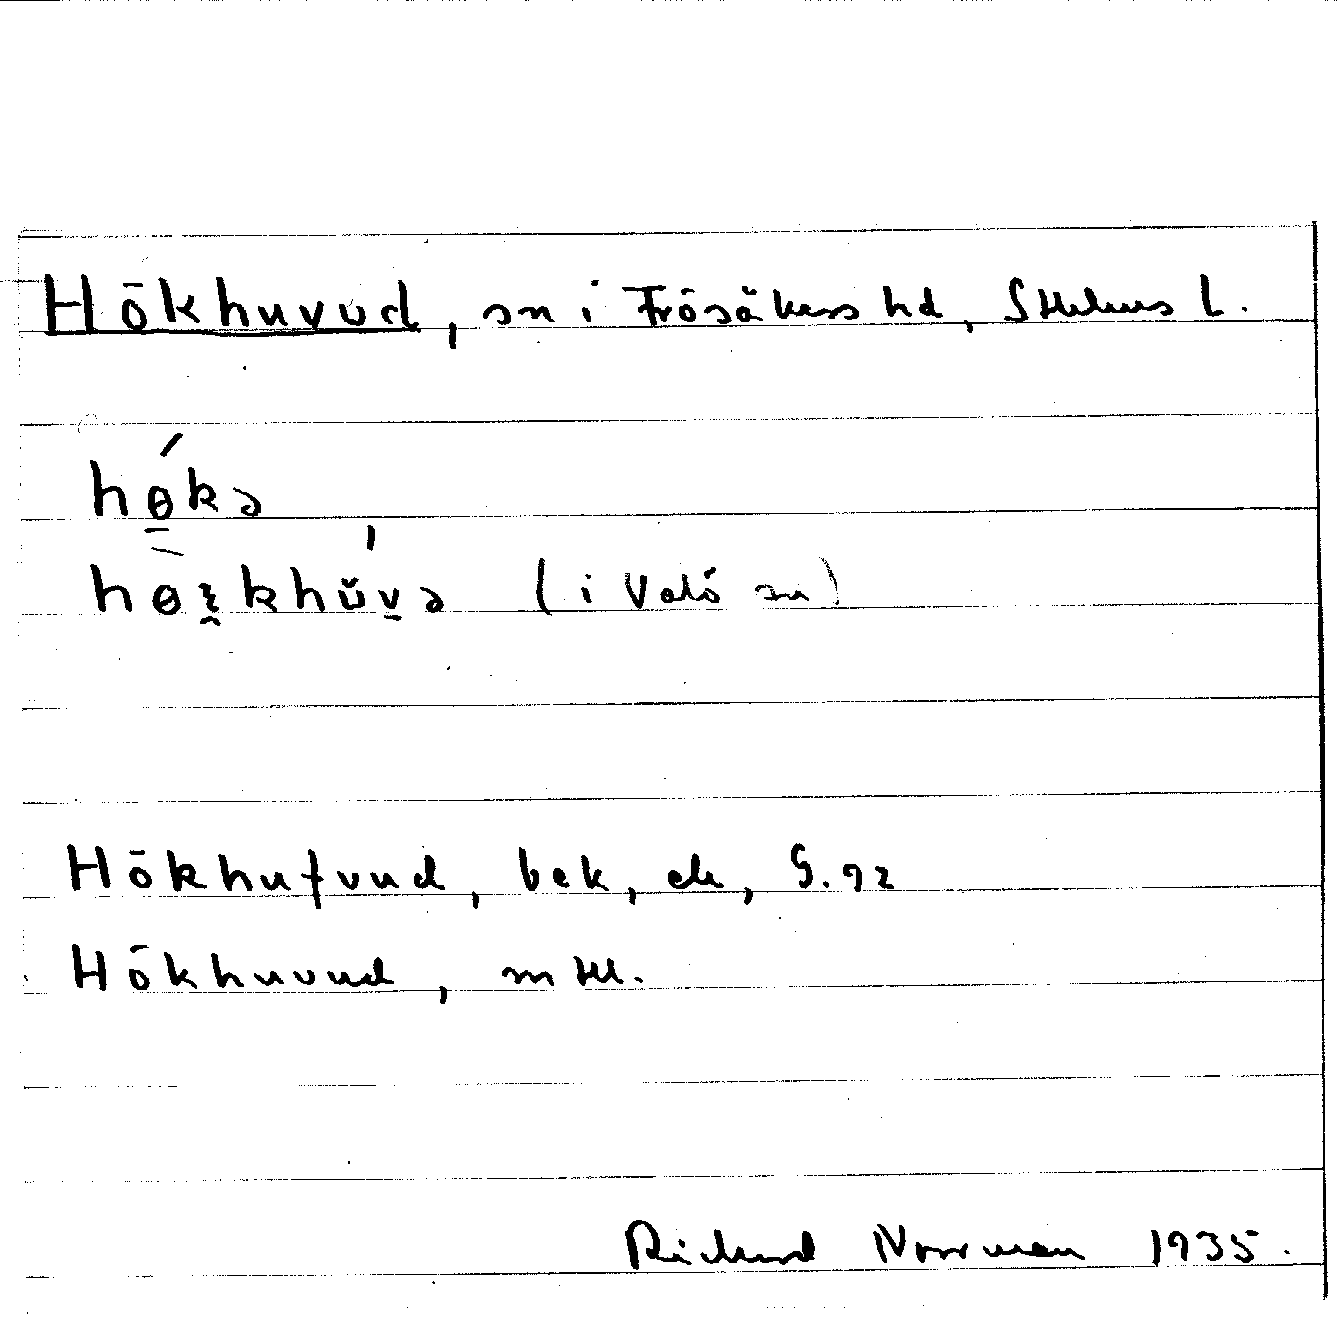 Hökhuvud, sn i Frösåkers hd, Sthlms l.
hө̱́kə
hөɀkhŭv̱ə (i Valö sn)
Hökhufvud, bek, ek, G. 92
Hökhuvud, mtll.
Richard Norrman 1935.